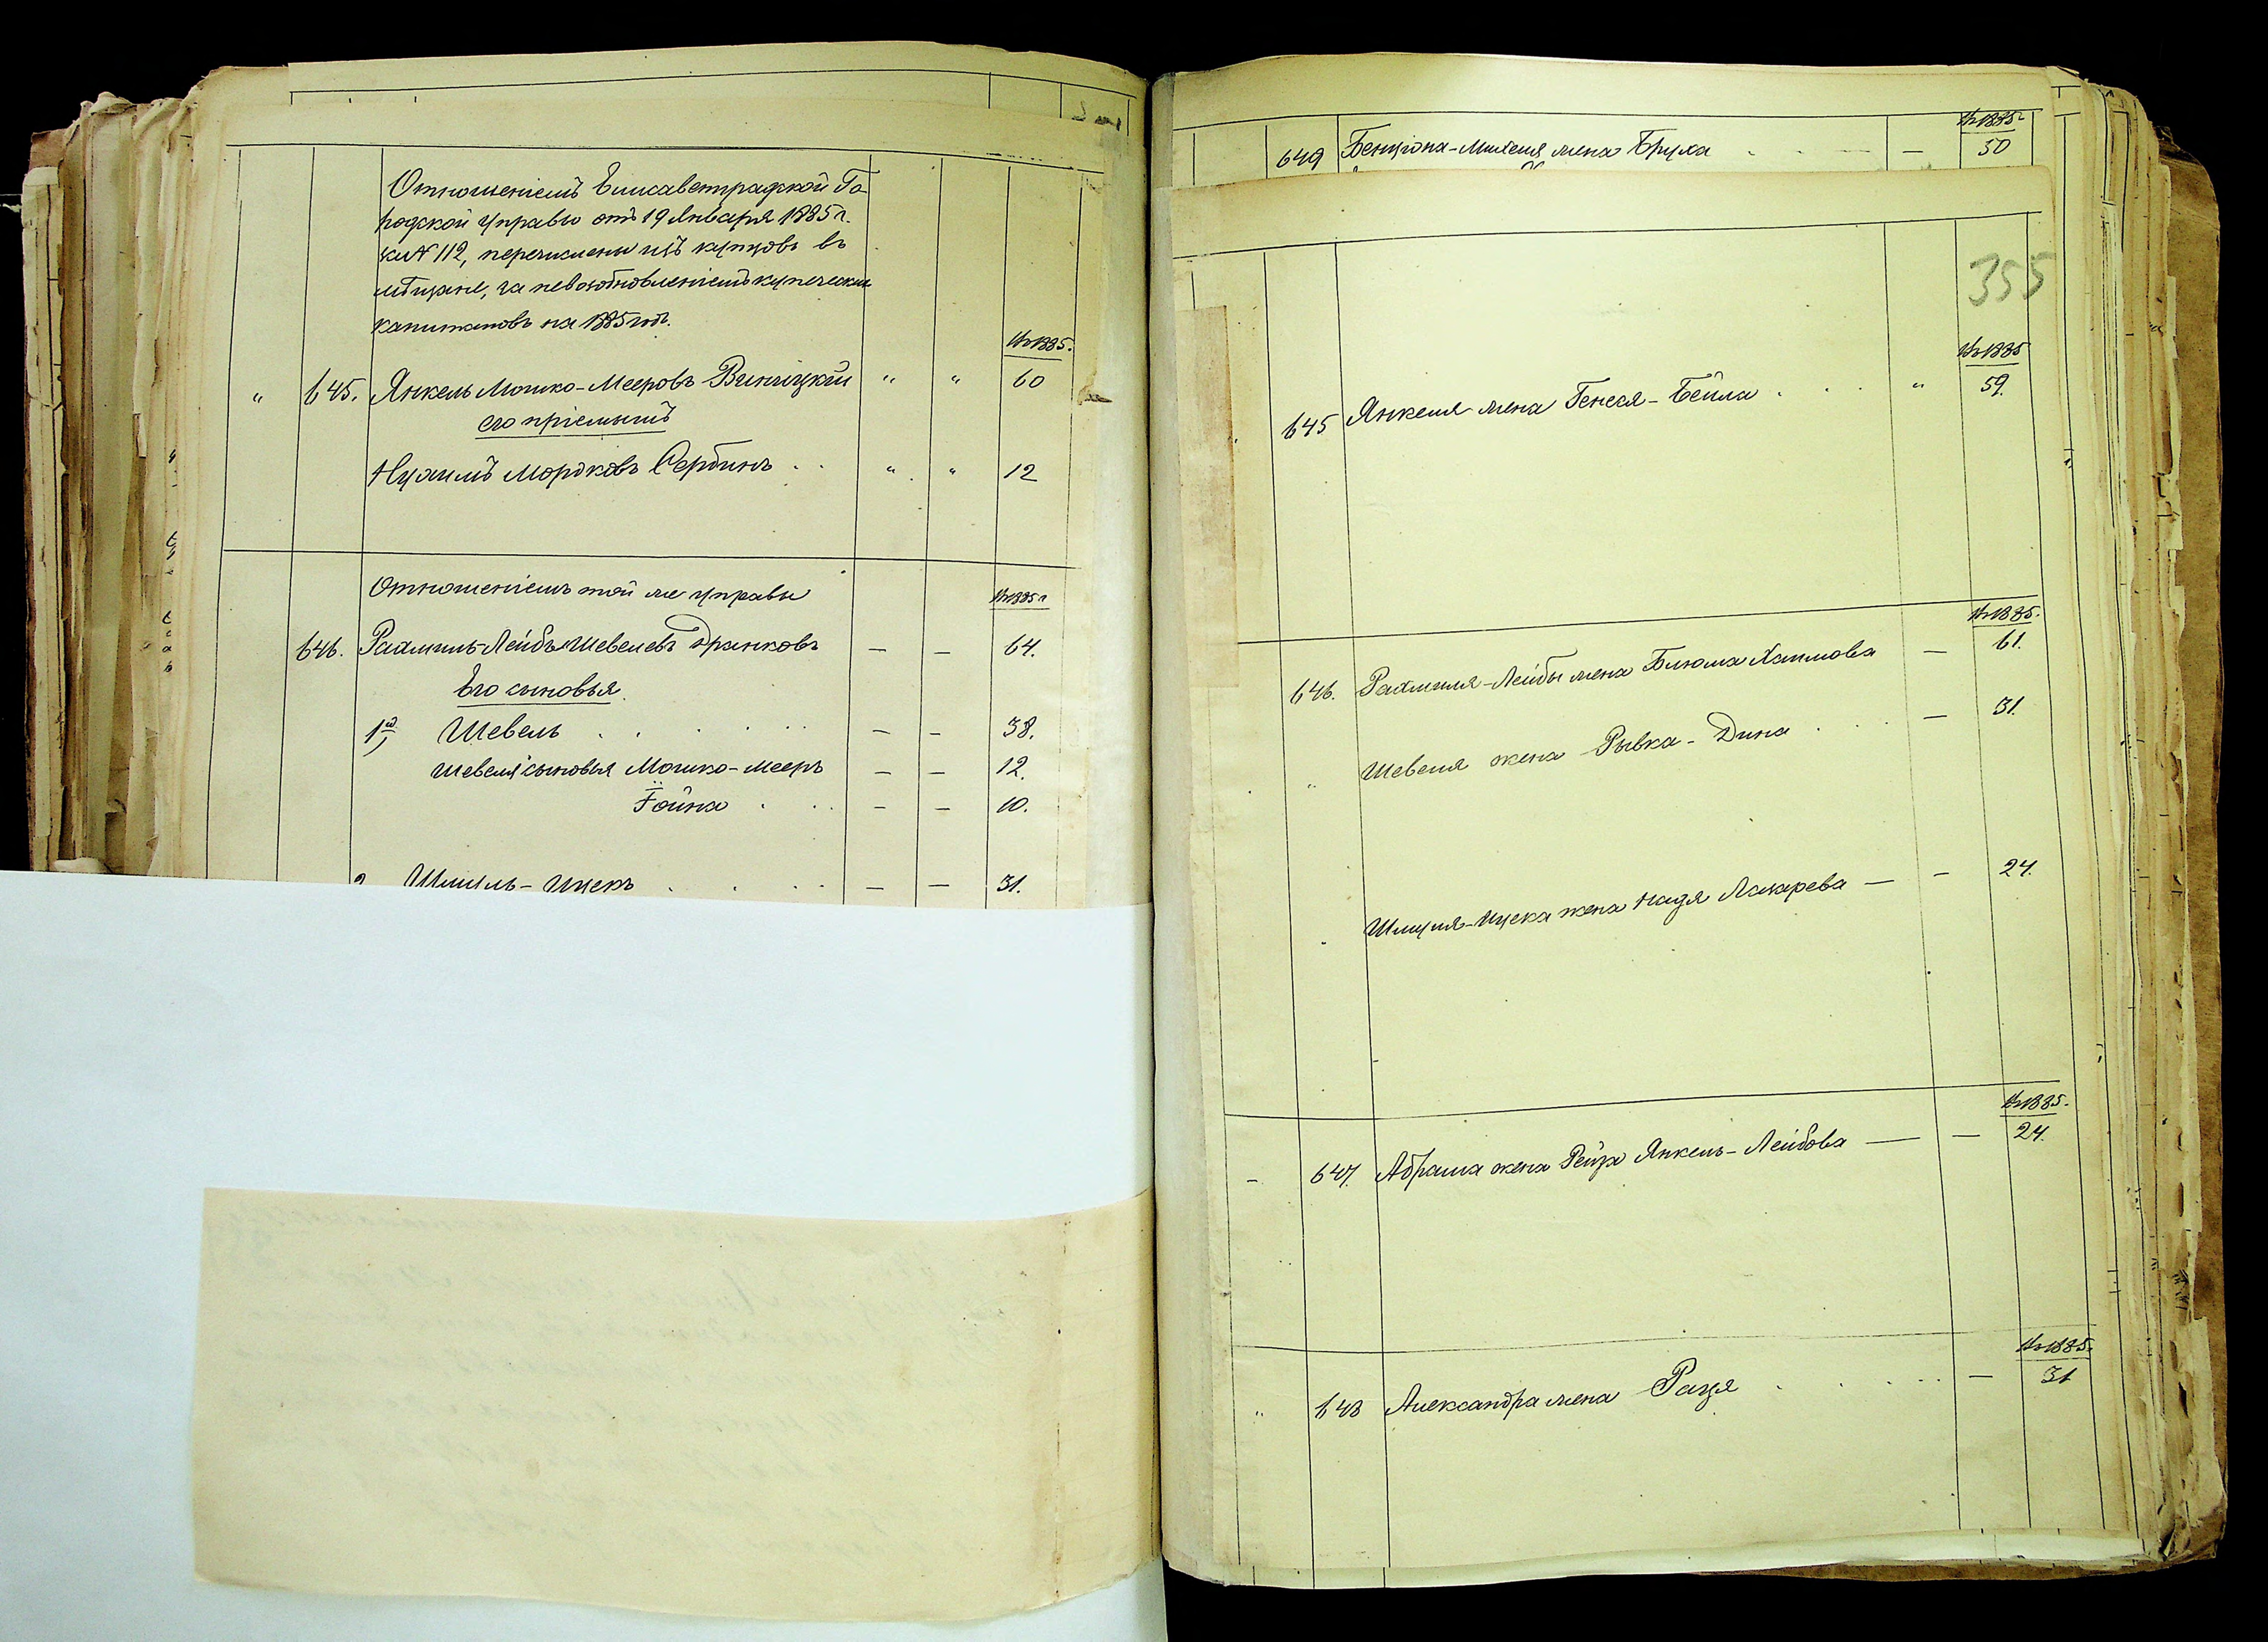 Отношеніемъ Елисаветградской Го-
родской Управы отъ 19 Января 1885 г.
за № 112, перечислены изъ купцовъ въ
мѣщане, за невозобновленіемъ купеческихъ
капиталовъ на 1885 годъ.
въ 1885.
" 645. Янкель Мошко-Мееровъ Винницкій " " 60
его пріемышъ
Нухимъ Мордковъ Сербинъ . . " " 12
Отношеніемъ той же управы
въ 1885 г.
646. Рахмиль-Лейбъ Шевелевъ Дранковъ — — 64.
Его сыновья
1й, Шевель . . . . . — — 38.
Шевеля сыновья Мошко-Мееръ — — 12.
Гойна . . . — — 10.
2 Шмуль-Ицекъ . . . . — — 31.
въ 1885 г.
649 Бенціона-Михеля жена Бруха . . — — 30
355
въ 1885
645 Янкеля жена Генеся-Бейла . . . " 59.
въ 1885.
646. Рахмиля-Лейбы жена Блюма Хаимова — 61.
" Шевеля жена Рывка-Дина . . . — 31.
" Шмуля-Ицека жена Надя Лазарева — — 24.
въ 1885.
— 647. Абрама жена Рейза Янкель-Лейбова — — 24.
въ 1885.
" 648 Александра жена Разя . . . . . — 31